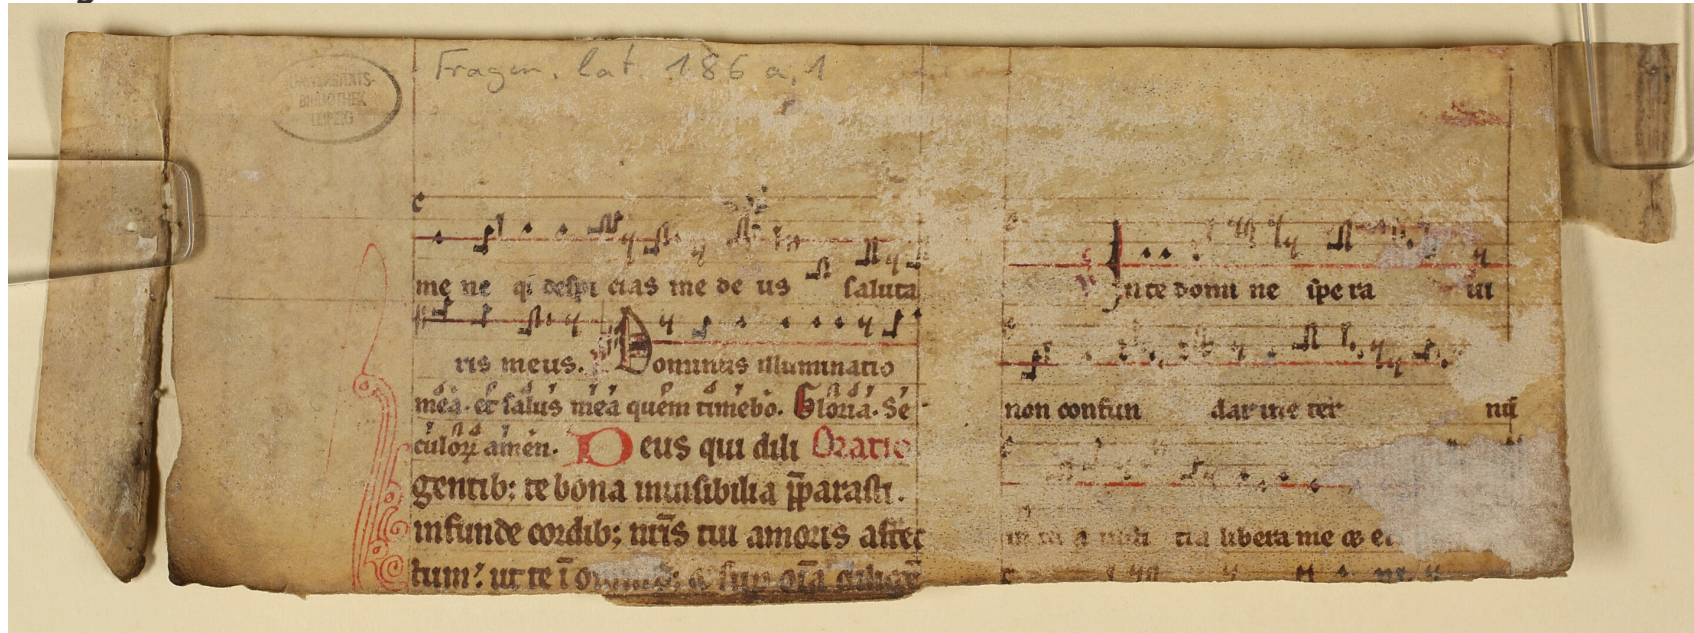 Fragm. lat. 186 a, 1
UNIVERSITÄTS-
BIBLIOTHEK
LEIPZIG
me ne qͥ despi cias me de us saluta
ris meus. Dominus illuminatio
mea. et salus mea quem timebo. Gloria. Se
culoꝝ amen. Deus qui dili Oratio
gentib; te bona inuisibilia p̄parasti.
infunde cordib; nr̄is tui amoris affec
tum? ut te ī
In te domi ne spe ra ui
non confun dar in e ter nū
tia libera me